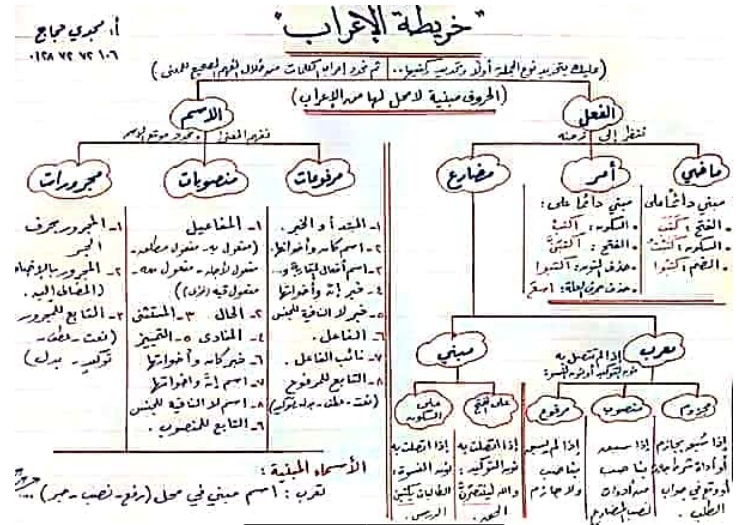 "خريطة الإعراب"
أ/ مجدي حجاج
٠١٢٨ ٧٢ ٧٢ ١٠٦
(عليك بتحديد نوع الجملة أولًا وتحديد ركنيها.. ثم تحدد إعراب الكلمات من خلال الفهم الصحيح للمعنى)
(الحروف مبنية لا محل لها من الإعراب)
الفعل
ننظر إلى زمنه
ماضي
مبني دائمًا على
• الفتح: كتبَ
• السكون: كتبْت
• الضم: كتبُوا
أمر
مبني دائمًا على:
• السكون: اكتبْ
• الفتح: اكتبَنَّ
• حذف النون: اكتبوا
• حذف حرف العلة:
مضارع
معرب
إذا لم تتصل به
نون التوكيد أو نون النسوة
مجزوم
إذا سُبق بجازم
أو أداة شرط جازمة
أو وقع في جواب
الطلب.
منصوب
إذا سبقه
ناصب
من أدوات
نصب المضارع
مرفوع
إذا لم يسبق
بناصب
ولا جازم
مبني
على الفتح
إذا اتصلت به
نون التوكيد:
والله لينتصرنَّ
الحق.
على السكون
إذا اتصلت به
نون النسوة:
الطالبات يكتبْن
الدرس.
الاسم
نفهم المعنى ونحدد موقع الاسم
مرفوعات
١- المبتدأ و الخبر.
٢- اسم كان وأخواتها.
٣- اسم أفعال المقاربة و...
٤- خبر إنَّ وأخواتها
٥- خبر لا النافية للجنس
٦- الفاعل.
٧- نائب الفاعل.
٨- التابع للمرفوع
(نعت - عطف - بدل - توكيد)
منصوبات
١- المفاعيل
(مفعول به - مفعول مطلق -
مفعول لأجله - مفعول معه -
مفعول فيه)
٢- الحال ٣- المستثنى
٤- المنادى ٥- التمييز
٦- خبر كان وأخواتها
٧- اسم إنَّ وأخواتها
٨- اسم لا النافية للجنس
٦- التابع للمنصوب.
مجرورات
١- المجرور بحرف
الجر
٢- المجرور بالإضافة
(المضاف إليه.
٣- التابع للمجرور
(نعت - عطف -
توكيد - بدل)
الأسماء المبنية:
تعرب: اسم مبني في محل (رفع - نصب - جر) ....